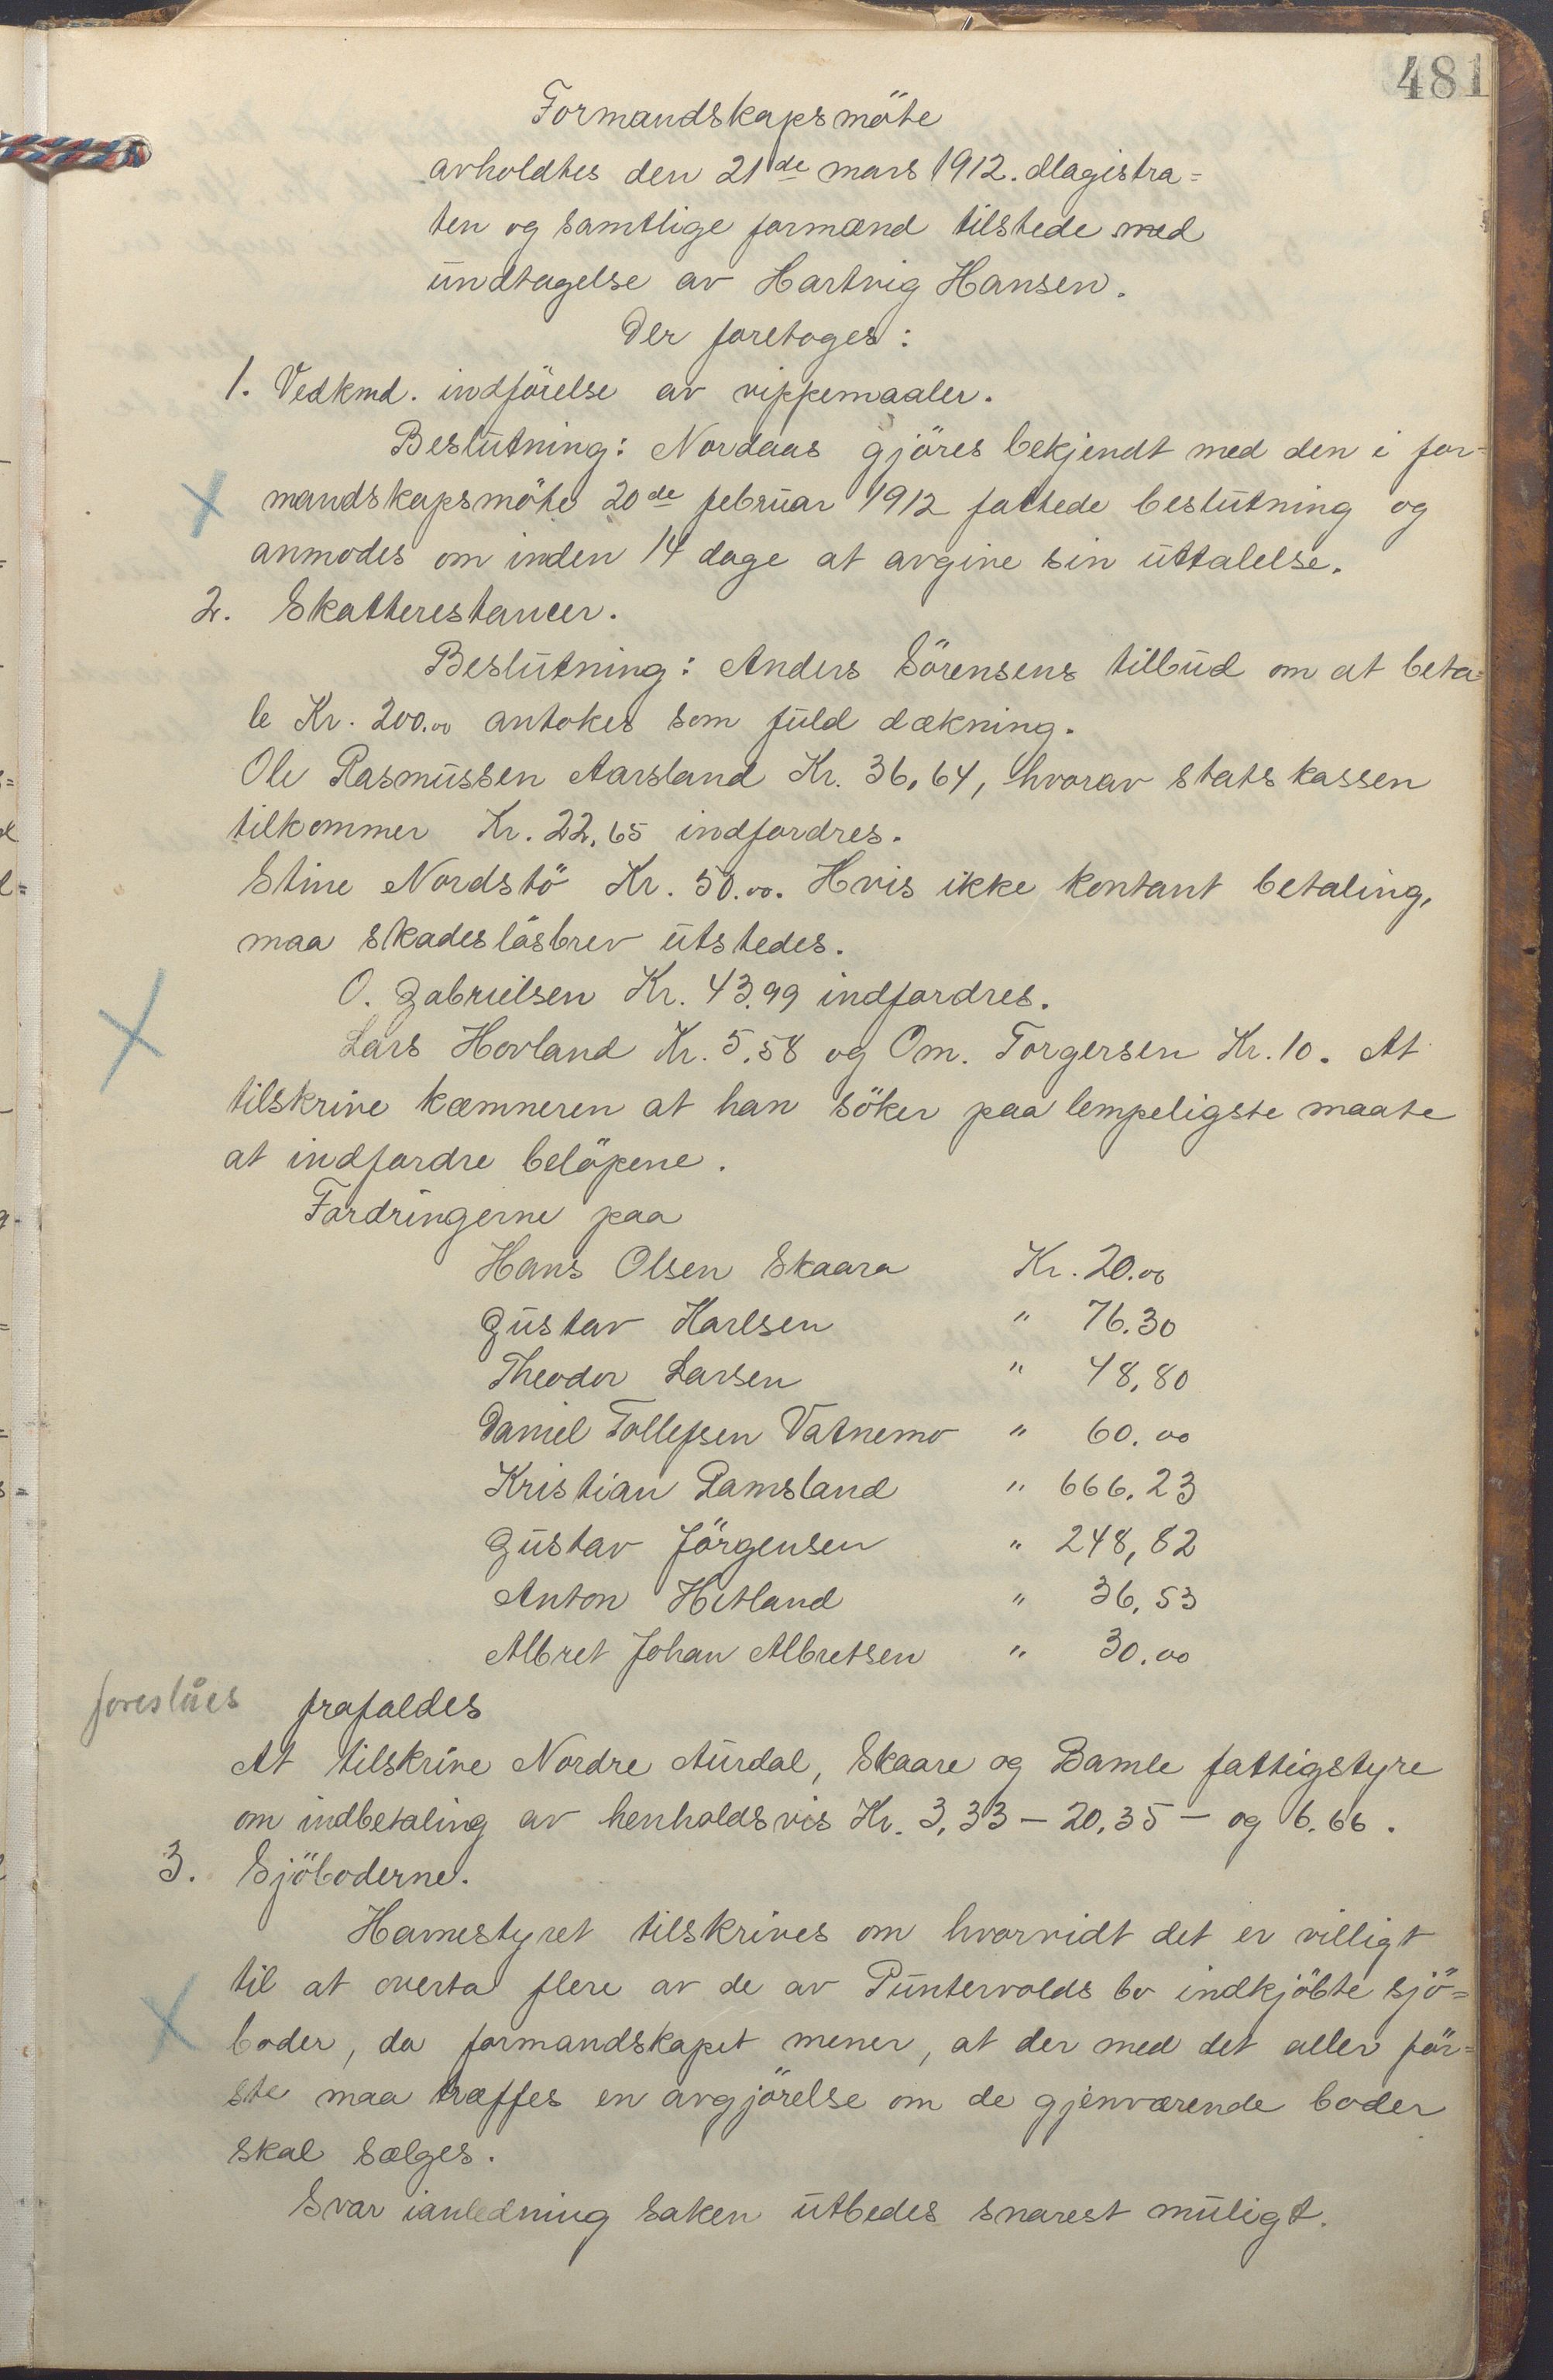 481
Formandskapsmöte
avholdtes den 21de mars 1912. Magistra=
ten og samtlige formænd tilstede med
undtagelse av Hartvig Hansen.
Der foretoges:
1. Vedkmd. indförelse av vippemaaler.
Beslutning: Nordaas gjöres bekjendt med den i for=
mandskapsmöte 20de februar 1912 fattede beslutning og
anmodes om inden 14 dage at avgive sin uttalelse.
2. Skatterestancer.
Beslutning: Anders Sörensens tilbud om at beta=
le Kr. 200.00 antokes som fuld dækning.
Ole Rasmussen Aarsland Kr. 36,64, hvorav statskassen
tilkommer Kr. 22,65 indfordres.
Stine Nordstö Kr. 50.00. Hvis ikke kontant betaling,
maa skadeslösbrev utstedes.
O. Gabrielsen Kr. 43.99 indfordres.
Lars Hovland Kr. 5.58 og Om. Torgersen Kr. 10. At
tilskrive kæmneren at han söker paa lempeligste maate
at indfordre belöpene.
Fordringerne paa
Hans Olsen Skaara Kr. 20.00
Gustav Karlsen " 76.30
Theodor Larsen " 48,80
Daniel Tollefsen Vatnemo " 60.00
Kristian Ramsland " 666.23
Gustav Jörgensen " 248,82
Anton Hetland " 36,53
Albret Johan Albretsen " 30.00
foreslåes frafaldes
At tilskrive Nordre Aurdal, Skaare og Bamle fattigstyre
om indbetaling av henholdsvis Kr. 3,33 – 20,35 – og 6.66.
3. Sjöboderne.
Havnestyret tilskrives om hvorvidt det er villigt
til at overta flere av de av Puntervolds bo indkjöbte sjö=
boder, da formandskapet mener, at der med det aller för=
ste maa træffes en avgjörelse om de gjenværende boder
skal sælges.
Svar ianledning saken utbedes snarest muligt.